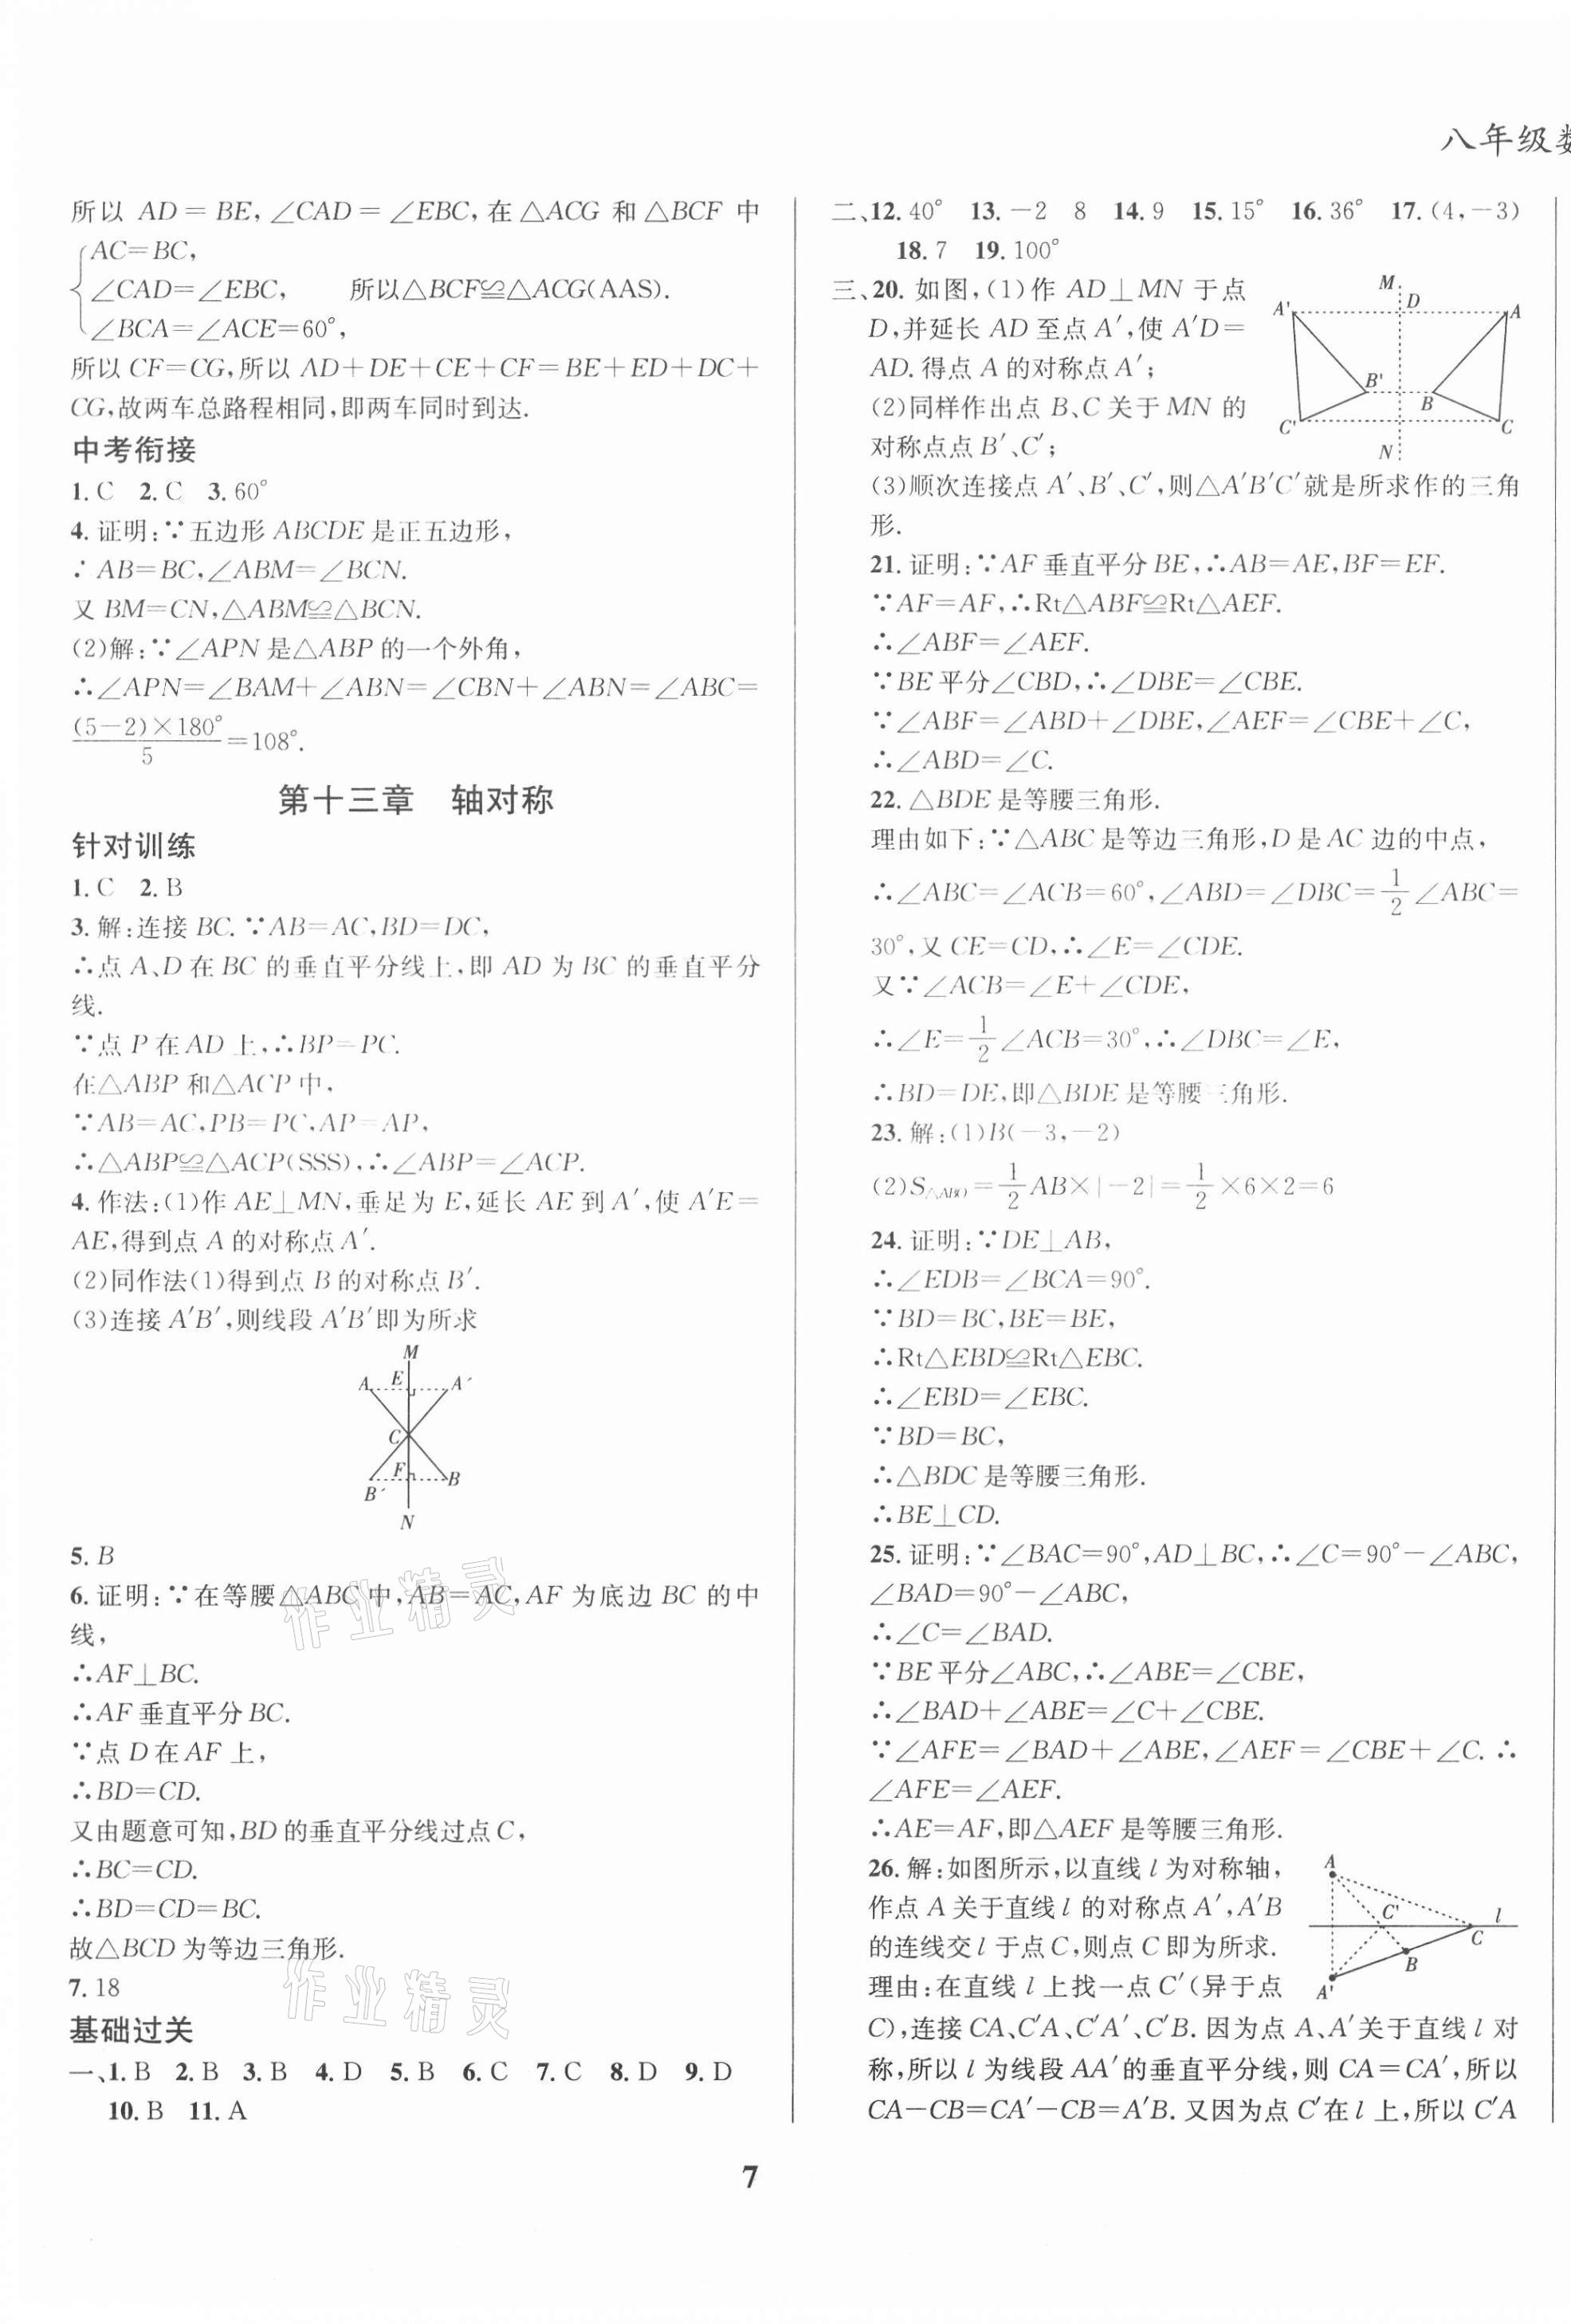 八年级数
所以 AD=BE,∠CAD=∠EBC,在△ACG 和△BCF 中
AC=BC,
∠CAD=∠EBC, 所以△BCF≌△ACG(AAS).
∠BCA=∠ACE=60°,
所以 CF=CG,所以 AD+DE+CE+CF=BE+ED+DC+
CG,故两车总路程相同,即两车同时到达.
中考衔接
1.C 2.C 3.60°
4.证明:∵五边形 ABCDE 是正五边形,
∴AB=BC,∠ABM=∠BCN.
又 BM=CN,△ABM≌△BCN.
(2)解:∵∠APN 是△ABP 的一个外角,
∴∠APN=∠BAM+∠ABN=∠CBN+∠ABN=∠ABC=
(5-2)×180°/5=108°.
第十三章 轴对称
针对训练
1.C 2.B
3.解:连接 BC.∵AB=AC,BD=DC,
∴点 A、D 在 BC 的垂直平分线上,即 AD 为 BC 的垂直平分
线.
∵点 P 在 AD 上,∴BP=PC.
在△ABP 和△ACP 中,
∵AB=AC,PB=PC,AP=AP,
∴△ABP≌△ACP(SSS),∴∠ABP=∠ACP.
4.作法:(1)作 AE⊥MN,垂足为 E,延长 AE 到 A′,使 A′E=
AE,得到点 A 的对称点 A′.
(2)同作法(1)得到点 B 的对称点 B′.
(3)连接 A′B′,则线段 A′B′即为所求
M
A E A′
C
F B
B′
N
5.B
6.证明:∵在等腰△ABC 中,AB=AC,AF 为底边 BC 的中
线,
∴AF⊥BC.
∴AF 垂直平分 BC.
∵点 D 在 AF 上,
∴BD=CD.
又由题意可知,BD 的垂直平分线过点 C,
∴BC=CD.
∴BD=CD=BC.
故△BCD 为等边三角形.
7.18
基础过关
一、1.B 2.B 3.B 4.D 5.B 6.C 7.C 8.D 9.D
10.B 11.A
二、12.40° 13.-2 8 14.9 15.15° 16.36° 17.(4,-3)
18.7 19.100°
三、20.如图,(1)作 AD⊥MN 于点
D,并延长 AD 至点 A′,使 A′D=
AD.得点 A 的对称点 A′;
(2)同样作出点 B、C 关于 MN 的
对称点点 B′、C′;
M
A' D A
B' B
C' C
N
(3)顺次连接点 A′、B′、C′,则△A′B′C′就是所求作的三角
形.
21.证明:∵AF 垂直平分 BE,∴AB=AE,BF=EF.
∵AF=AF,∴Rt△ABF≌Rt△AEF.
∴∠ABF=∠AEF.
∵BE 平分∠CBD,∴∠DBE=∠CBE.
∵∠ABF=∠ABD+∠DBE,∠AEF=∠CBE+∠C,
∴∠ABD=∠C.
22.△BDE 是等腰三角形.
理由如下:∵△ABC 是等边三角形,D 是 AC 边的中点,
∴∠ABC=∠ACB=60°,∠ABD=∠DBC=1/2∠ABC=
30°,又 CE=CD,∴∠E=∠CDE.
又∵∠ACB=∠E+∠CDE,
∴∠E=1/2∠ACB=30°,∴∠DBC=∠E,
∴BD=DE,即△BDE 是等腰三角形.
23.解:(1)B(-3,-2)
(2)S△ABO=1/2AB×|-2|=1/2×6×2=6
24.证明:∵DE⊥AB,
∴∠EDB=∠BCA=90°.
∵BD=BC,BE=BE,
∴Rt△EBD≌Rt△EBC.
∴∠EBD=∠EBC.
∵BD=BC,
∴△BDC 是等腰三角形.
∴BE⊥CD.
25.证明:∵∠BAC=90°,AD⊥BC,∴∠C=90°-∠ABC,
∠BAD=90°-∠ABC,
∴∠C=∠BAD.
∵BE 平分∠ABC,∴∠ABE=∠CBE,
∴∠BAD+∠ABE=∠C+∠CBE.
∵∠AFE=∠BAD+∠ABE,∠AEF=∠CBE+∠C.∴
∠AFE=∠AEF.
∴AE=AF,即△AEF 是等腰三角形.
26.解:如图所示,以直线 l 为对称轴,
作点 A 关于直线 l 的对称点 A′,A′B
的连线交 l 于点 C,则点 C 即为所求.
理由:在直线 l 上找一点 C′(异于点
A
C' l
C
B
A'
C),连接 CA、C′A、C′A′、C′B.因为点 A、A′关于直线 l 对
称,所以 l 为线段 AA′的垂直平分线,则 CA=CA′,所以
CA-CB=CA′-CB=A′B.又因为点 C′在 l 上,所以 C′A
7
作业精灵
作业精灵